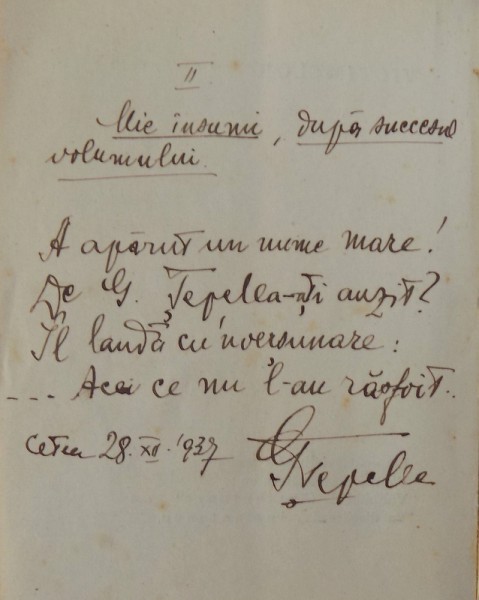 II
Mie însumi, după succesul
volumului.
A apărut un nume mare!
De G. Ţepelea-aţi auzit?
Îl laudă cu'nverşunare:
... Acei ce nu l-au răsfoit..
Cetea 28. XII. '937
GŢepelea